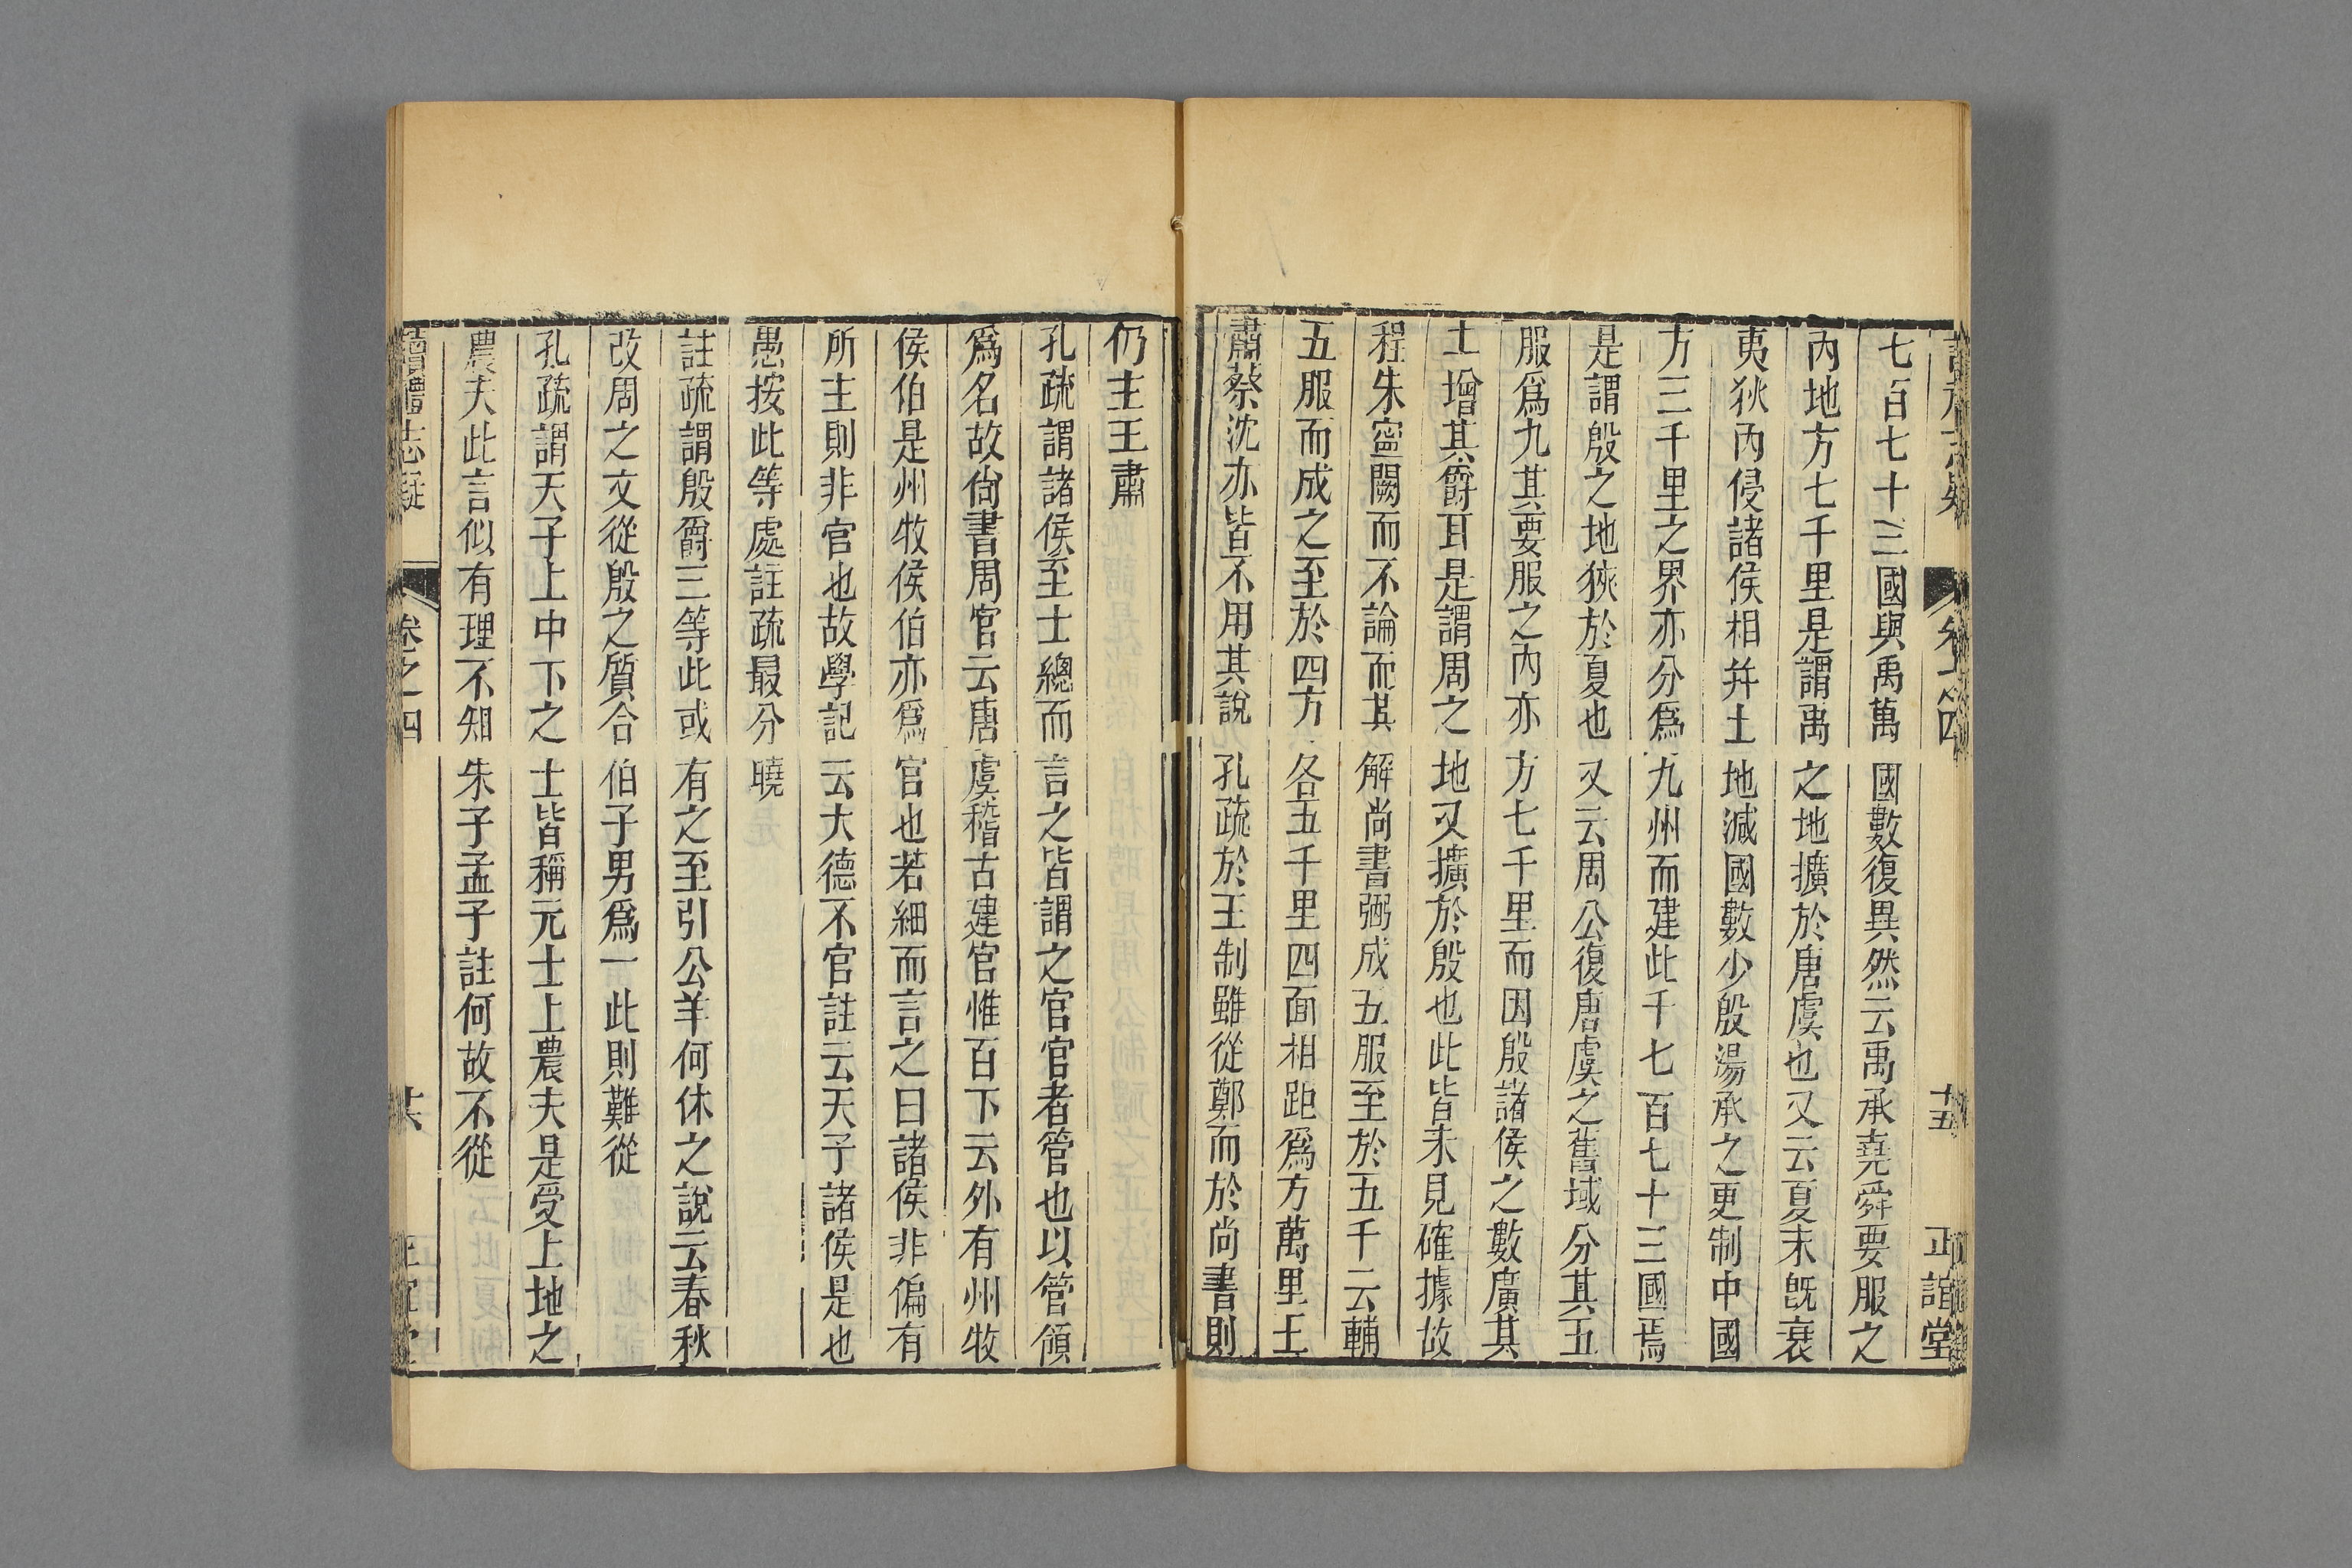 讀禮志疑 卷之四 十五 正誼堂
七百七十三國與禹萬國數復異然云禹承堯舜要服之
內地方七千里是謂禹之地擴於唐虞也又云夏末旣衰
夷狄內侵諸侯相幷土地減國數少殷湯承之更制中國
方三千里之界亦分爲九州而建此千七百七十三國焉
是謂殷之地狹於夏也又云周公復唐虞之舊域分其五
服爲九其要服之內亦方七千里而因殷諸侯之數廣其
土增其爵耳是謂周之地又擴於殷也此皆未見確據故
程朱寧闕而不論而其解尚書弼成五服至於五千云輔
五服而成之至於四方各五千里四面相距爲方萬里王
肅蔡沈亦皆不用其說孔疏於王制雖從鄭而於尚書則
仍主王肅
孔疏謂諸侯至士總而言之皆謂之官官者管也以管領
爲名故尙書周官云唐虞稽古建官惟百下云外有州牧
侯伯是州牧侯伯亦爲官也若細而言之曰諸侯非偏有
所主則非官也故學記云大德不官註云天子諸侯是也
愚按此等處註疏最分曉
註疏謂殷爵三等此或有之至引公羊何休之說云春秋
改周之文從殷之質合伯子男爲一此則難從
孔疏謂天子上中下之士皆稱元士上農夫是受上地之
農夫此言似有理不知朱子孟子註何故不從
讀禮志疑 卷之四 十六 正誼堂